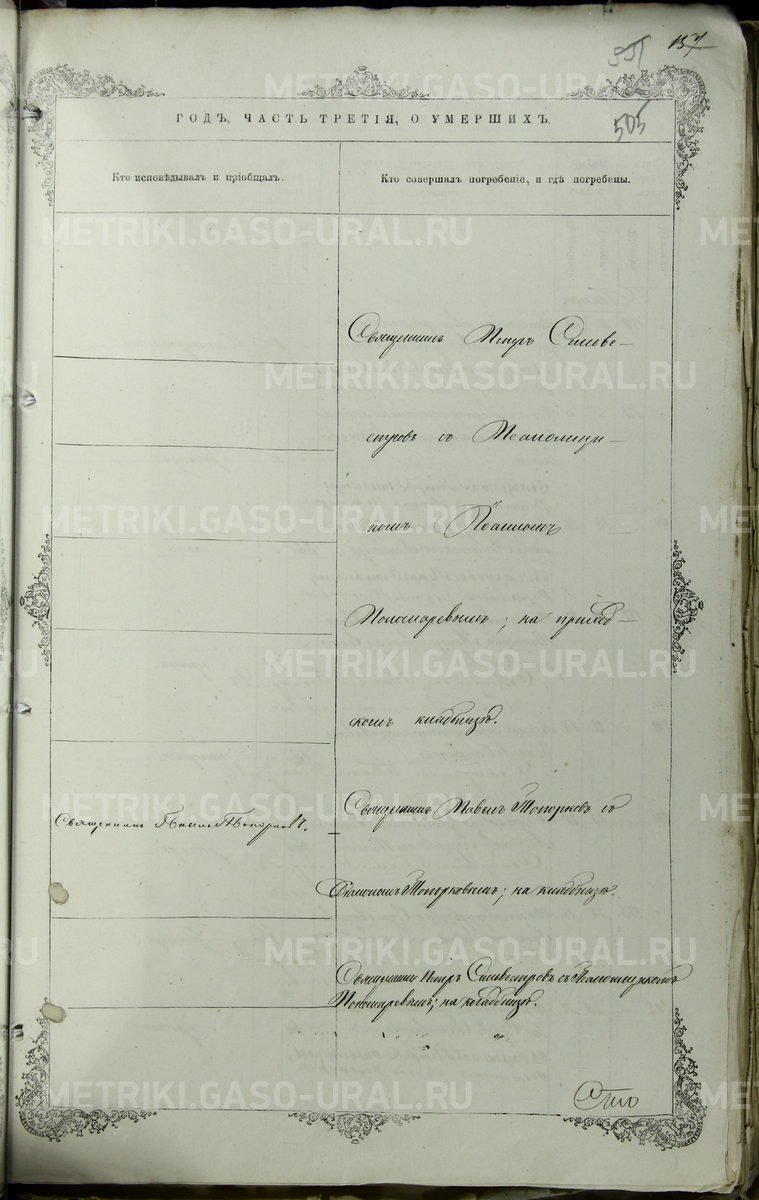 157
551
505
ГОДЪ, ЧАСТЬ ТРЕТІЯ, О УМЕРШИХЪ.
Кто исповѣдывалъ и пріобщалъ.
Кто совершалъ погребеніе, и гдѣ погребены.
Священникъ Петръ Сильве-
стровъ съ Псаломщи-
комъ Іоанномъ
Пономаревымъ; на приход-
скомъ кладбищѣ.
Священникъ Павелъ Топорковъ.
Священникъ Павелъ Топорковъ съ
Діакономъ Топорковымъ; на кладбищѣ.
Священникъ Петръ Сильвестровъ съ Псаломщикомъ
Пономаревымъ; на кладбищѣ.
METRIKI.GASO-URAL.RU